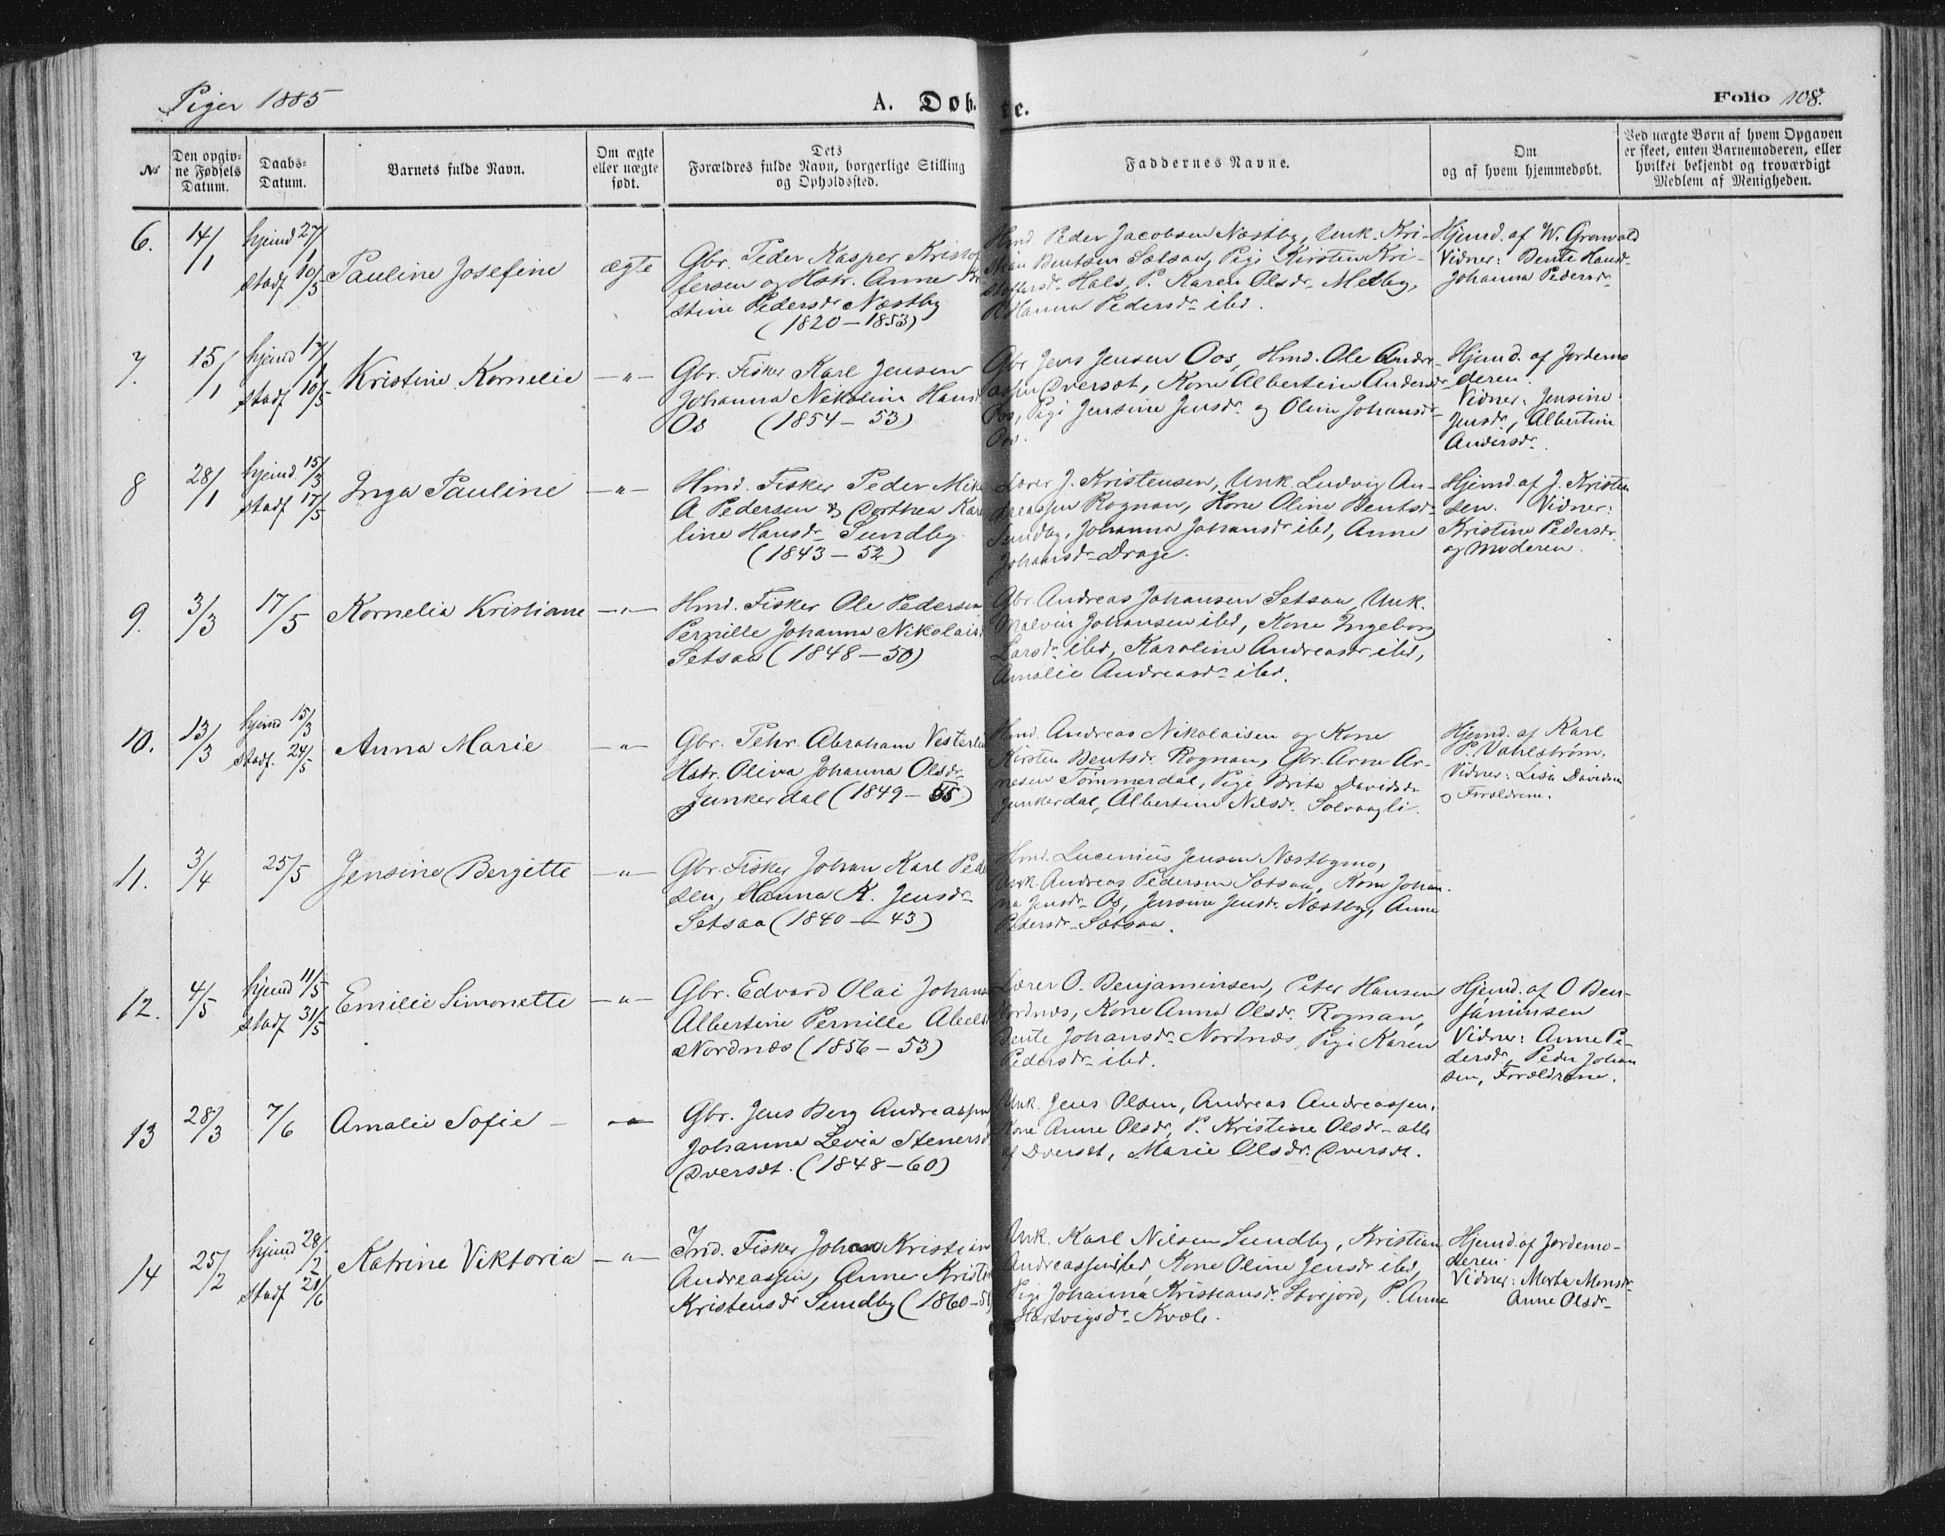 Piger 1885
A. Døb
te.
Folio 108.
No
Den opgiv-
ne Fødsels
Datum.
Daabs-
Datum.
Barnets fulde Navn.
Om ægte
eller uægte
født.
Dets
Forældres fulde Navn, borgerlige Stilling
og Opholdssted.
Faddernes Navne.
Om
og af hvem hjemmedøbt.
Ved uægte Børn af hvem Opgaven
er skeet, enten Barnemoderen, eller
hvilket bekjendt og troværdigt
Medlem af Menigheden.
6.
14/1
hjemd 27/1
stadf 10/5
Pauline Josefine
ægte
Gbr. Peder Kasper Kristof
fersen og Hstr. Anne Kri
stine Pedersdr Næstby
(1820-1853)
Hmd. Peder Jacobsen Næstby, Unk. Kri-
stian Bentsen Sætsaa, Pige Kirsten Kri-
stoffersdr. Hals, P. Karen Olsdr. Medby,
P. Hanna Pedersdr ibd.
Hjemd. af W. Grønvold
Vidner: Bente Hansdr
Johanna Pedersdr
7.
15/1
hjemd 17/1
stadf 10/5
Kristine Kornelie
-"-
Gbr. Fisker Karl Jensen
Johanna Nikoline Hansd
Os (1854-53)
Gbr Jens Jensen Oos, Hmd. Ole Andre-
assen Dverset, Kone Albertine Andersdr
Oos, Pige Jensine Jensdr. og Oline Johansdr
Oos.
Hjemd. af Jordemo
deren.
Vidner: Jensine
Jensdr., Albertine
Andersdr.
8
28/1
hjemd. 15/3
stadf 17/5
Inga Pauline
-"-
Hmd. Fisker Peder Mik
A Pedersen & Dorthea Kar
line Hansdr Sundby.
(1843-52)
Lærer J. Kristensen, Unk Ludvig An-
dreassen Rognan, Kone Oline Bentsdr
Sundby, Johanna Johansdr ibd, Anne
Johansdr Drage.
Hjemd. af J. Kristen
sen. Vidner:
Kristine Pedersdr
og Moderen.
9.
3/3
17/5
Kornelia Kristiane
-"-
Hmd. Fisker Ole Pedersen
Pernille Johanna Nikolaisd
Setsaa (1848-50)
Gbr. Andreas Johansen Setsaa, Unk.
Malvin Johansen ibd, Kone Ingeborg
Larsdr ibd, Karoline Andreasdr ibd,
Amalie Andreasdr ibd.
10.
13/3
hjemd 15/3
Stadf. 24/5
Anna Marie
-"-
Gbr. Pehr Abraham Vesterlu
Hstr. Oliva Johanna Olsdr
Junkerdal (1849-55)
Hmd. Andreas Nikolaisen og Kone
Kirsten Bentsdr. Rognan, Gbr. Arne Ar-
nesen Tømmerdal, Pige Brita Davidsdr
Junkerdal, Albertine Nilsdr. Solvaagli.
Hjemd. af Karl
P. Vahlstrøm.
Vidner: Lisa Davidsen
og Forældrene.
11.
3/4
25/5
Jensine Bergitte
-"-
Gbr. Fisker Johan Karl Ped
sen, Hanna K. Jensdr
Setsaa (1840-43)
Hmd. Lucinius Jensen Næstbymo,
Unk. Andreas Pedersen Sætsaa, Kone Johan-
na Jensdr Os, Jensine Jensdr. Næstby, Anne
Pedersdr Sætsaa.
12.
4/5
hjemd 11/5
stadf 31/5
Emilie Simonette
-"-
Gbr. Edvard Olai Johans
Albertine Pernille Abelsd
Nordnæs (1856-53)
Lærer O. Benjaminsen, Peter Hansen
Nordnæs, Kone Anna Olsdr. Rognan,
Bente Johansdr Nordnæs, Pige Karen
Pedersdr ibd.
Hjemd. af O Ben-
jaminsen
Vidner: Anne Pe-
dersdr, Peder Johan
sen, Forældrene.
13
28/3
7/6
Amalie Sofie -
-"-
Gbr. Jens Berg Andreassen
Johanna Levia Stenersd
Dverset. (1848-60)
Unk. Jens Olsen, Andreas Andreassen,
Kone Anne Olsdr, P. Kristine Olsdr - alle
af Dverset, Marie Olsdr. Dverset.
14
25/2
hjemd 28/2
stadf 21/6
Katrine Viktoria
-"-
Ind. Fisker Johan Kristian
Andreassen, Anne Kristi
Kristensdr Sundby (1860-5
Unk. Karl Nilsen Sundby, Kristian
Andreassen ibd, Kone Oline Jensdr ibd,
Pige Johanna Kristiansdr. Storjord, P. Anne
Hartvigsdr Kvæle.
Hjemd. af Jordemo-
deren.
Vidner: Marta Monsdr
Anne Olsdr